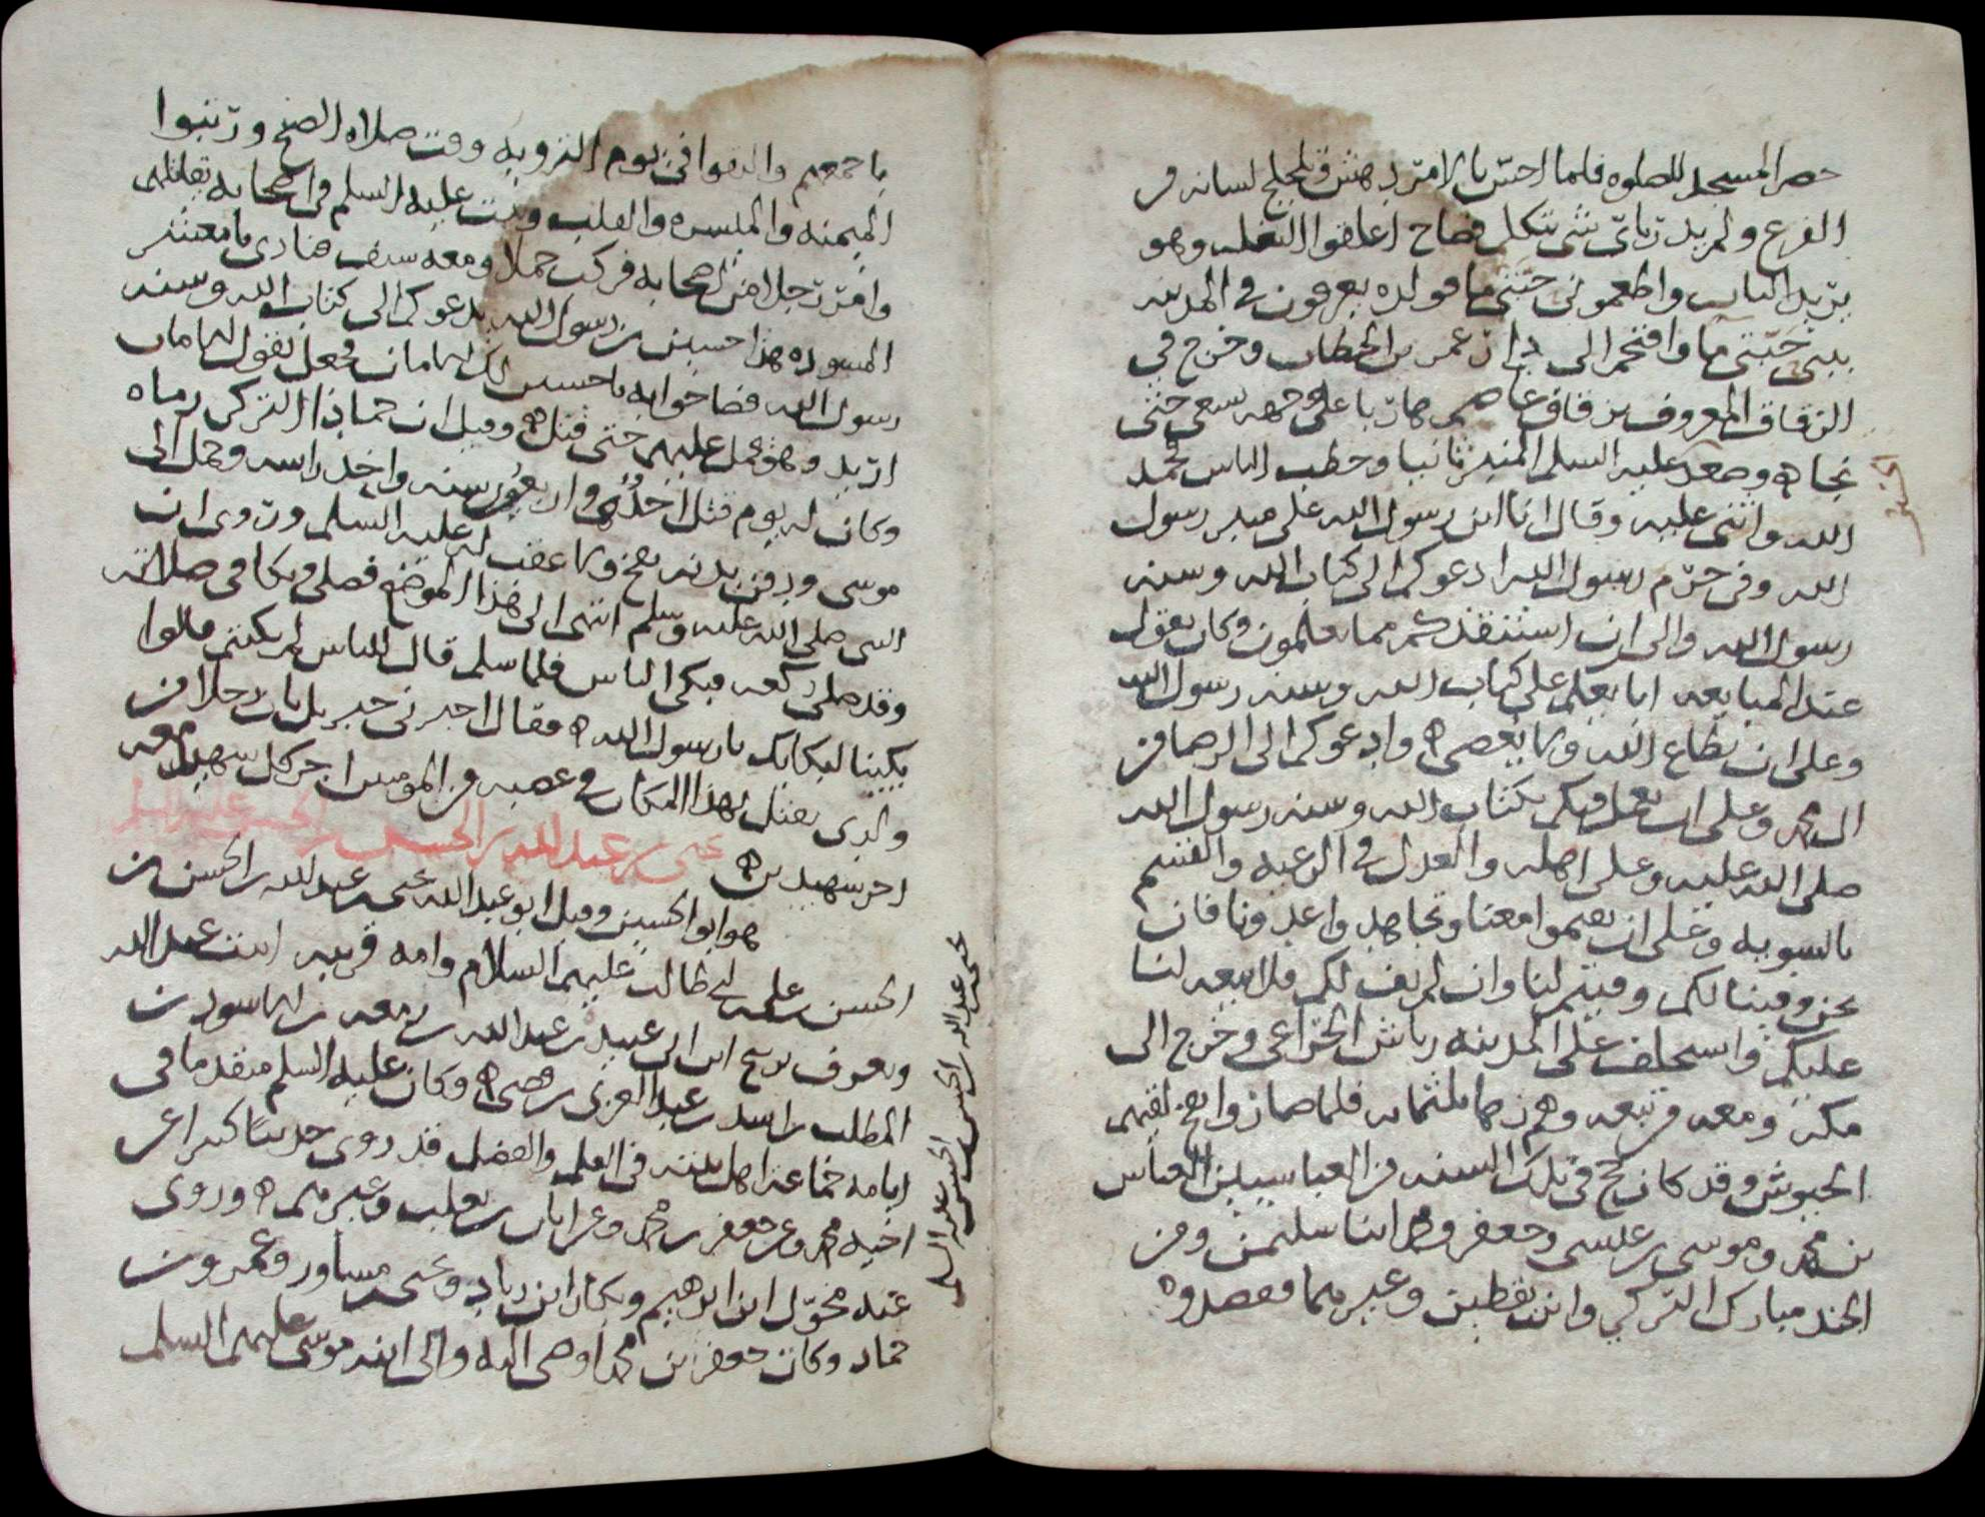 حضر المسجد للصلوه فلما احسّ بالامر دهش وتلجلج لسانه من
الفزع ولم يدر باىّ شى يتكلم فصاح اغلقوا البغله وهو
يريد الباب واطعمونى حبتى ما فولده يعرفون فى المدينه
ببنى حبتى ما واقتحم الى دار عمر بن الخطاب وخرج فى
الزقاق المعروف بزقاق عاصم هاربا على وجهه يسعى حتى
نجاه وصعد عليه السلم المنبر ثانيا وخطب الناس فحمد
الله واثنى عليه وقال انا ابن رسول الله على منبر رسول
الله وفى حرم رسول الله ادعوكم الى كتاب الله وسنه
رسول الله والى ان استنقذكم مما تعلمون وكان يقول
عند المبايعه ابايعكم على كتاب الله وسنه رسول الله
وعلى ان يطاع الله ولا يعصى ه وادعوكم الى الرضا من
ال محمد وعلى ان نعمل فيكم بكتاب الله وسنه رسول الله
صلى الله عليه وعلى اهله والعدل فى الرعيه والقسم
بالسويه وعلى ان تقيموا معنا وتجاهدوا عدونا فان
نحن وفينا لكم وفيتم لنا وان لم نف لكم فلا بيعه لنا
عليكم واستخلف على المدينه رياش الخزاعى وخرج الى
مكه ومعه من تبعه وهم زها ثلثمايه فلما صاروا بفخ لقيهم
الجيوش وقد كان حج فى تلك السنه من العباسيين العباس
بن محمد وموسى بن عيسى وجعفر ومحمد ابنا سليمن ومن
الجند مبارك التركي وابن يقطين وغيرهما فقصدوه
باجمعهم والتقوا فى يوم الترويه وقت صلاه الصبح ورتبوا
الميمنه والميسره والقلب وثبت عليه السلم فى اصحابه يقاتلهم
وامر رجلا من اصحابه فركب جملا ومعه سيف فنادى يا معشر
المسوده هذا حسين بن رسول الله يدعوكم الى كتاب الله وسنه
رسول الله فصاحوا به يا حسين لك الامان فجعل يقول الامان
اريد وهو يحمل عليهم حتى قتل ه وقيل ان حماد التركى رماه
وكان له يوم قتل احدى واربعون سنه واخذ راسه وحمل الى
موسى ودفن بدنه بفخ ولا عقب له عليه السلم وروى ان
النبى صلى الله عليه وسلم انتهى الى هذا الموضع فصلى وبكا فى صلاته
وقد صلى ركعه فبكى الناس فلما سلم قال للناس لم بكيتم قالوا
بكينا لبكايك يا رسول الله ه فقال اخبرنى جبريل بان رجلا من
ولدى يقتل بهذا المكان فى عصبه من المومنين اجر كل شهيد معه
اجر شهيدين ه يحيى بن عبد الله بن الحسن بن الحسن عليه السلم
هو ابو الحسين وقيل ابو عبد الله يحيى بن عبد الله بن الحسن بن
الحسن بن على بن ابى طالب عليهم السلام وامه قريبه ابنت عبد الله
ويعرف بذبيح ابن ابى عبيده بن عبد الله بن زمعه بن الاسود بن
المطلب بن اسد بن عبد العزى بن قصى ه وكان عليه السلم متقدما فى
ايامه جماعه اهل بيته فى العلم والفضل قد روى حديثا كثيرا عن
اخيه محمد وعن جعفر بن محمد وعن ابان بن تغلب وغيرهم ه وروى
عنه مخوّل ابن ابرهيم وبكار ابن زياد ويحيى بن مساور وعمرو بن
حماد وكان جعفر بن محمد اوصى اليه والى ابنه موسى عليهم السلم
يحيى بن عبد الله بن الحسن بن الحسن عليه السلم